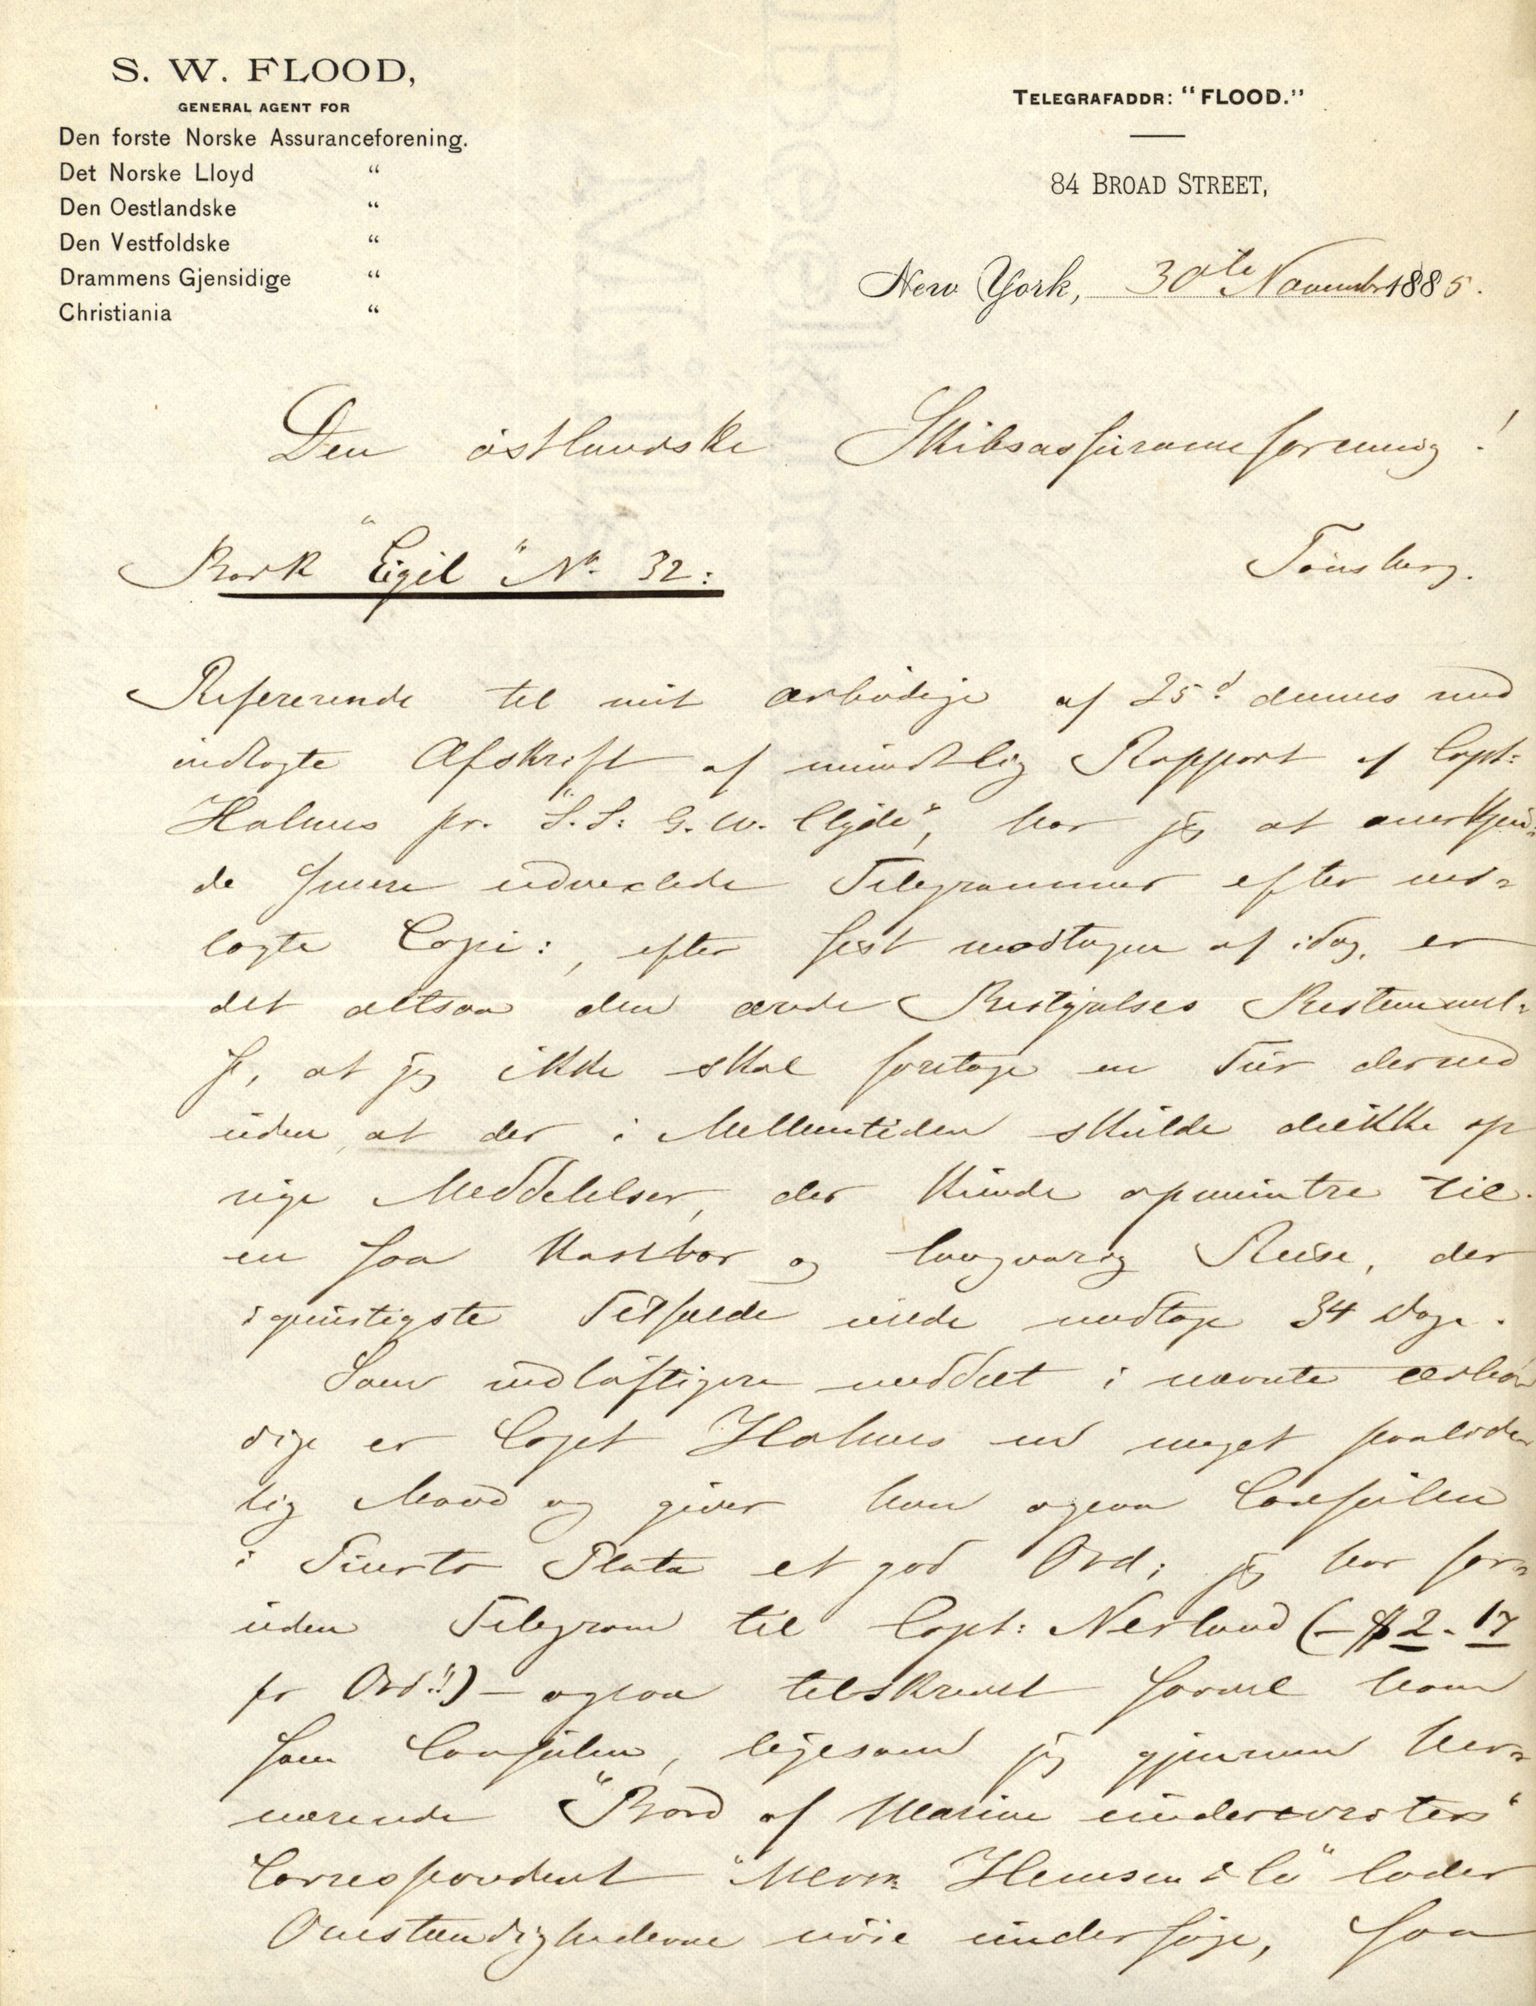 S. W. FLOOD,
GENERAL AGENT FOR
Den forste Norske Assuranceforening.
Det Norske Lloyd "
Den Oestlandske "
Den Vestfoldske "
Drammens Gjensidige "
Christiania "
TELEGRAFADDR: "FLOOD."
84 BROAD STREET,
New York, 30te November 1885.
Den östlandske Skibsassuranceforening!
Tönsberg.
Bark "Eigil" No. 32:
Refererende til mit ærbödige af 25d dennes med
indlagte Afskrift af mundtlig Rapport af Capt:
Holmes pr. "S.S: G. W. Clyde", har jeg at anerkjen-
de senere udvexlede Telegrammer efter ved-
lagte Copi:, efter sist modtagne af idag, er
det altsaa den ærede Bestyrelses Bestemmel-
se, at jeg ikke skal foretage en Tur derned
uden, at der i Mellemtiden skulde
Meddelelser, der kunde opmuntre til
en saa kostbar og langvarig Reise, der
i gunstigste Tilfælde vilde medtage 34 Dage.
Som udlöftigere meddelt i nævnte ærbö
dige er Capt Holmes en meget paalide
lig Mand og giver han ogsaa Consulen
i Puerto Plata et god Ord; jeg har for-
uden Telegram til Capt: Nerlund (- $ 2. 17
pr Ord!!) - ogsaa tilskrevet saavel ham
som Consulen, ligesom jeg gjennem her-
værende "Bord af Marine underwriters"
Correspondent "Hemsen & Co" lader
Omstændighederne nöie undersöge, saa